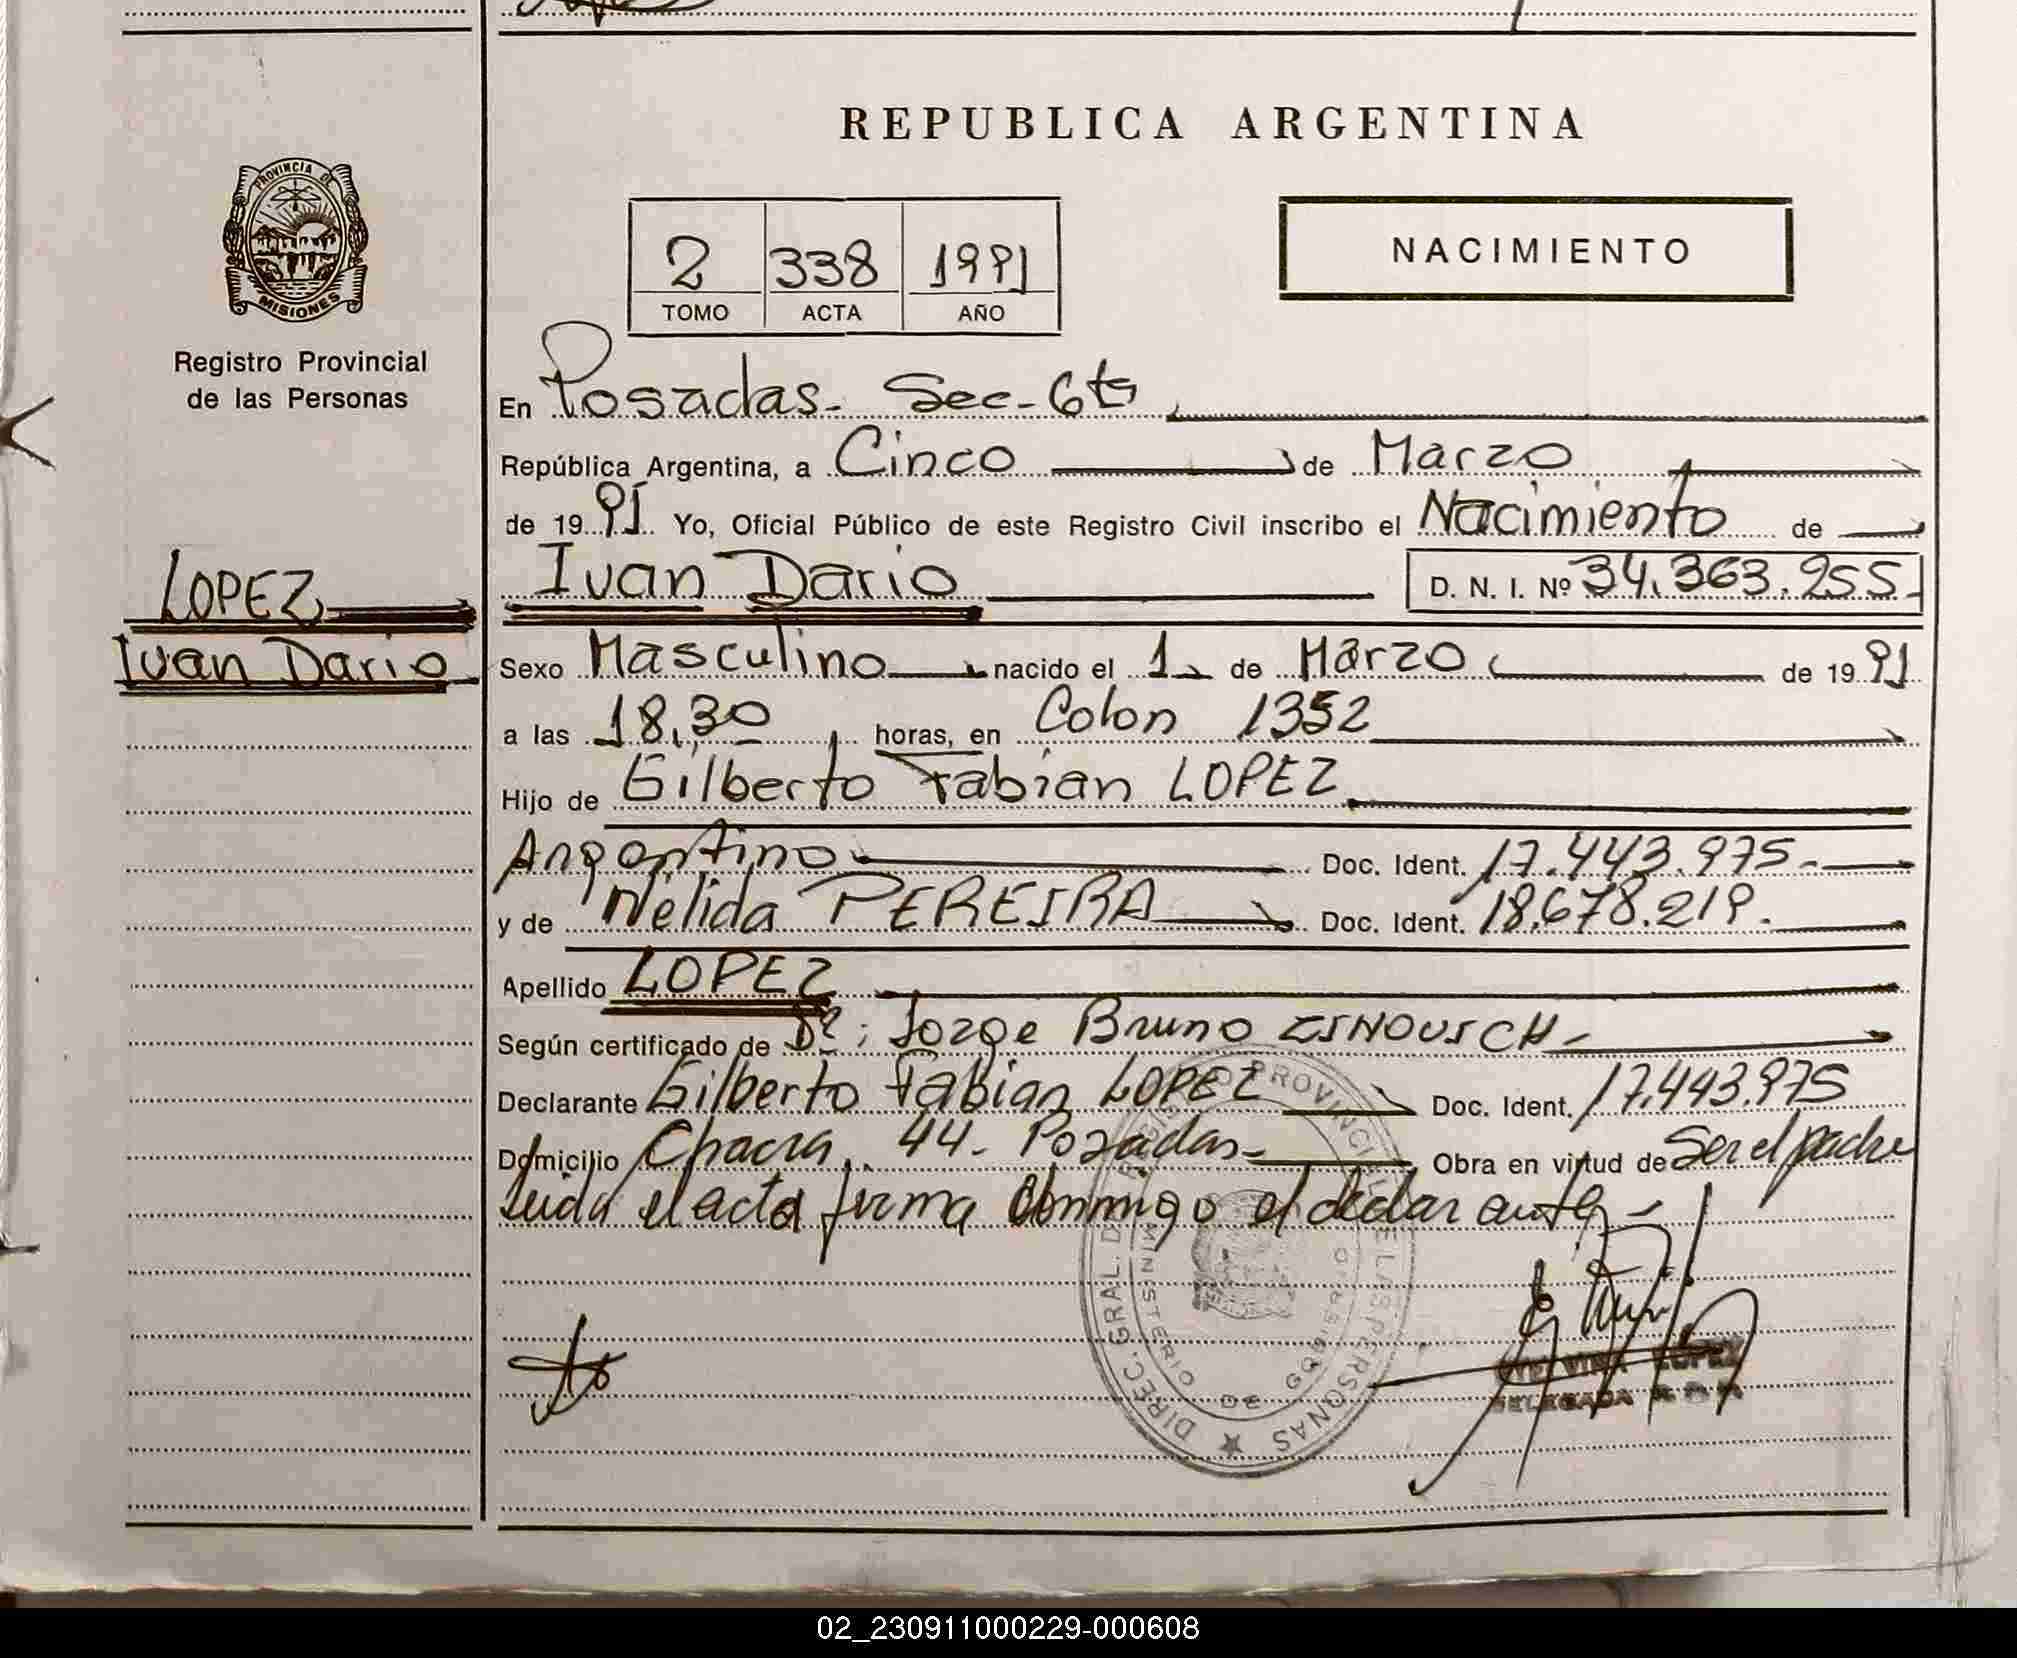 REPUBLICA ARGENTINA
PROVINCIA DE
MISIONES
Registro Provincial
de las Personas
2 338 1991
TOMO ACTA AÑO
NACIMIENTO
En Posadas - Sec - 6ta
República Argentina, a Cinco de Marzo
de 19 91 Yo, Oficial Público de este Registro Civil inscribo el Nacimiento de
LOPEZ
Ivan Dario
Ivan Dario D. N. I. Nº 34.363.255
Sexo Masculino nacido el 1 de Marzo de 19 91
a las 18,30 horas, en Colon 1352
Hijo de Gilberto Fabian LOPEZ
Argentino Doc. Ident. 17.443.975.-
y de Nélida PEREIRA Doc. Ident. 18.678.219.
Apellido LOPEZ
Según certificado de Dr: Jorge Bruno
Declarante Gilberto Fabian LOPEZ Doc. Ident. 17.443.975
Domicilio Chacra 44 - Posadas - Obra en virtud de Ser el padre
Leida el acta firma conmigo el declarante -
DIREC. GRAL. DEL REGISTRO PROVINCIAL DE LAS PERSONAS
MINISTERIO DE GOBIERNO
LOPEZ
DELEGADA
02_230911000229-000608